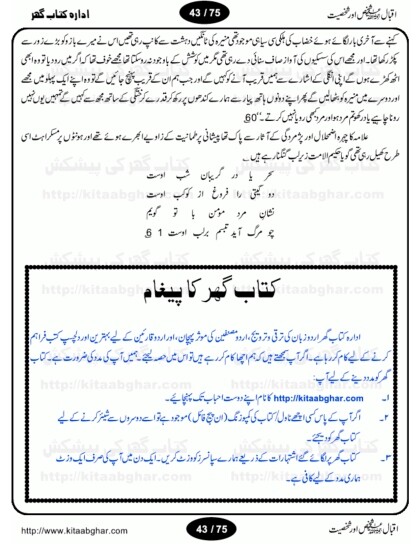 اقبال ﷺ شخص اور شخصیت
43 / 75
ادارہ کتاب گھر
کہنے سے آخری بار لگائے ہوئے خضاب کی ہلکی سی سیاہی موجود تھی منیرہ کی ٹانگیں دہشت سے کانپ رہی تھیں اس نے میرے بازو کو بڑے زور سے
پکڑ رکھا تھا۔ اور مجھے اس کی سسکیوں کی آواز صاف سنائی دے رہی تھی مگر میں کوشش کے باوجود نہ رو سکتا تھا مجھے خوف تھا کہ اگر میں رو دیا تو وہ ابھی
اٹھ کھڑے ہوں گے اپنی انگلی کے اشارے سے ہمیں قریب آنے کو کہیں گے اور جب ہم ان کے قریب پہنچ جائیں گے تو وہ اپنے ایک پہلو میں مجھے
اور دوسرے میں منیرہ کو بٹھالیں گے پھر اپنے دونوں ہاتھ پیار سے ہمارے کندھوں پر رکھ کر قدرے کرختگی کے ساتھ مجھ سے کہیں گے تمہیں یوں نہیں
رونا چاہیے یاد رکھو تم مرد ہو اور مرد بھی رویا نہیں کرتے۔'' 60
علامہ کا چہرہ اضمحلال اور پژمردگی کے آثار سے پاک تھا پیشانی پر تمکنت کے زاویے ابھرے ہوئے تھے اور ہونٹوں پر مسکراہٹ اسی
طرح کھیل رہی تھی گویا حکیم الامت زیر لب گنگنا رہے ہیں۔
سحر ہا در گریبان شب اوست
دو گیتی را فروغ از کوکب اوست
نشان مرد مؤمن با تو گویم
چو مرگ آید تبسم برلب اوست 61
کتاب گھر کا پیغام
ادارہ کتاب گھر اردو زبان کی ترقی و ترویج، اردو مصنفین کی موثر پہچان، اور اردو قارئین کے لیے بہترین اور دلچسپ کتب فراہم
کرنے کے لیے کام کر رہا ہے۔ اگر آپ سمجھتے ہیں کہ ہم اچھا کام کر رہے ہیں تو اس میں حصہ لیجئے۔ ہمیں آپ کی مدد کی ضرورت ہے۔ کتاب
گھر کو مدد دینے کے لیے آپ:
۱۔ http://kitaabghar.com کا نام اپنے دوست احباب تک پہنچائیے۔
۲۔ اگر آپ کے پاس کسی اچھے ناول/کتاب کی کمپوزنگ (ان پیج فائل) موجود ہے تو اسے دوسروں سے شیئر کرنے کے لیے
کتاب گھر کو دیجئے۔
۳۔ کتاب گھر پر لگائے گئے اشتہارات کے ذریعے ہمارے سپانسرز کو وزٹ کریں۔ ایک دن میں آپ کی صرف ایک وزٹ
ہماری مدد کے لیے کافی ہے۔
اقبال ﷺ شخص اور شخصیت
43 / 75
http://www.kitaabghar.com
کتاب گھر کی پیشکش
http://kitaabghar.com